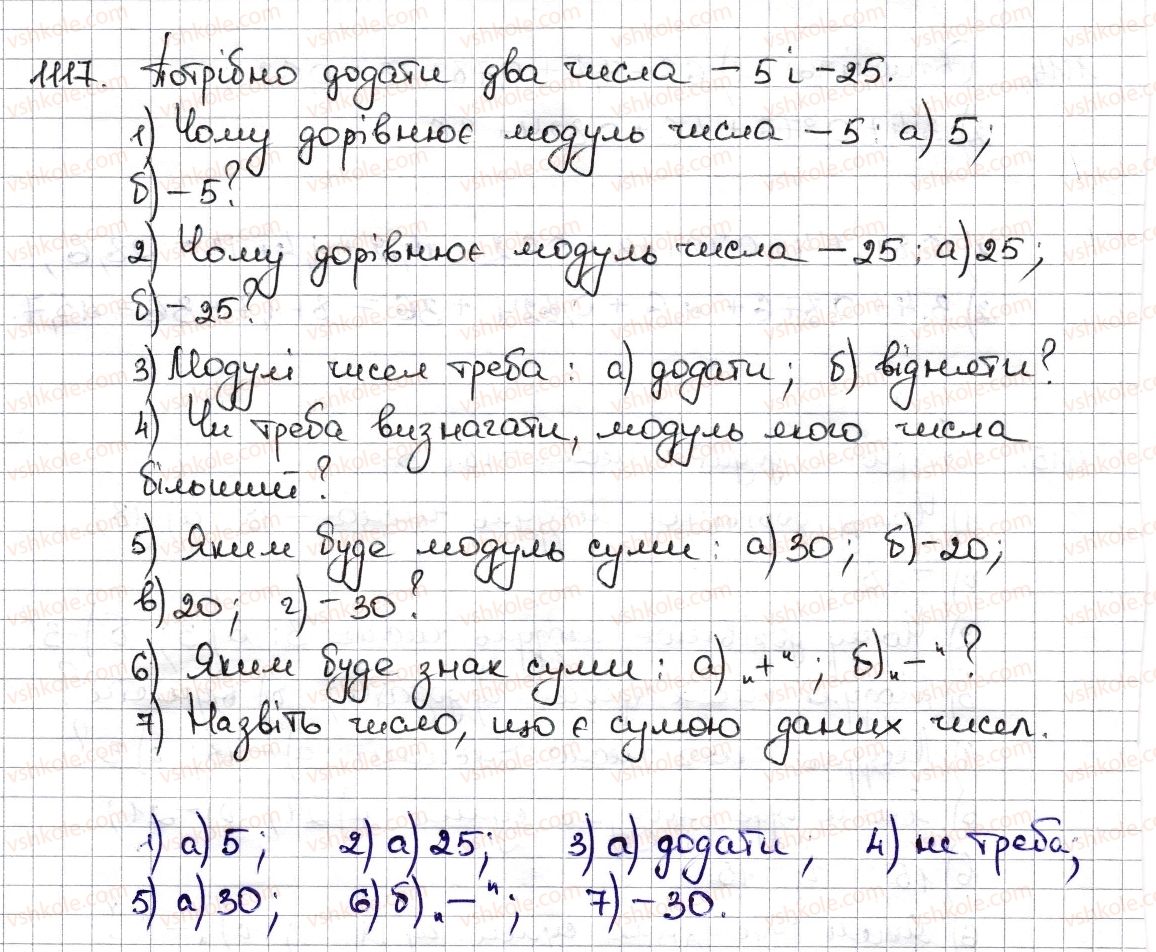 1117. Потрібно додати два числа – 5 і – 25.
1) Чому дорівнює модуль числа – 5 : а) 5;
б) – 5?
2) Чому дорівнює модуль числа – 25 : а) 25;
б) – 25?
3) Модулі чисел треба : а) додати; б) відняти?
4) Чи треба визначати, модуль якого числа
більший?
5) Яким буде модуль суми : а) 30; б) –20;
в) 20; г) – 30?
6) Яким буде знак суми : а) „+“; б) „–“?
7) Назвіть число, що є сумою даних чисел.
1) а) 5; 2) а) 25; 3) а) додати; 4) не треба;
5) а) 30; 6) б) „–“; 7) – 30.